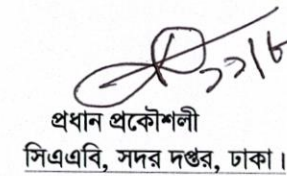 ২২/৮
প্রধান প্রকৌশলী
সিএএবি, সদর দপ্তর, ঢাকা।